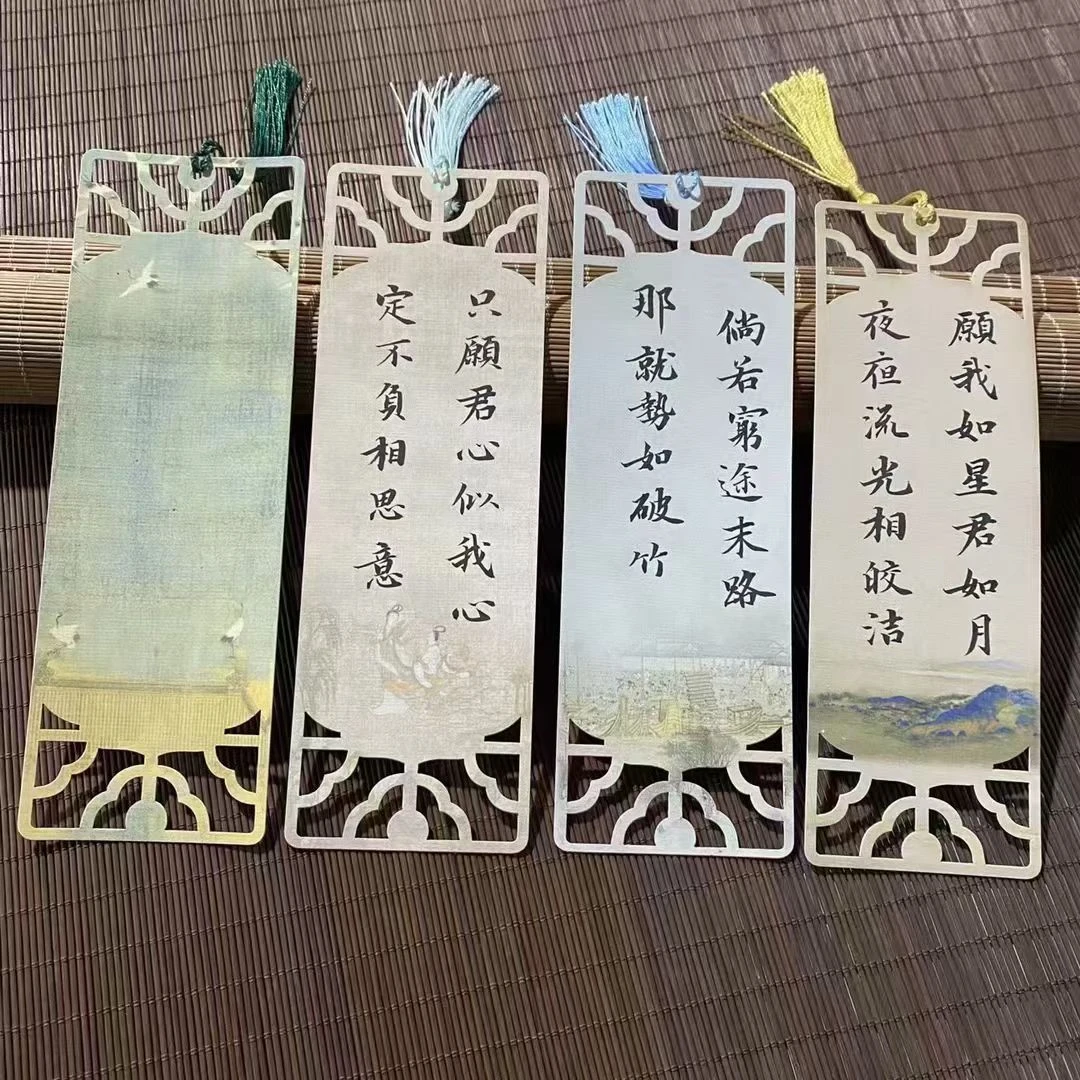 只願君心似我心
定不負相思意
倘若窮途末路
那就勢如破竹
願我如星君如月
夜夜流光相皎洁